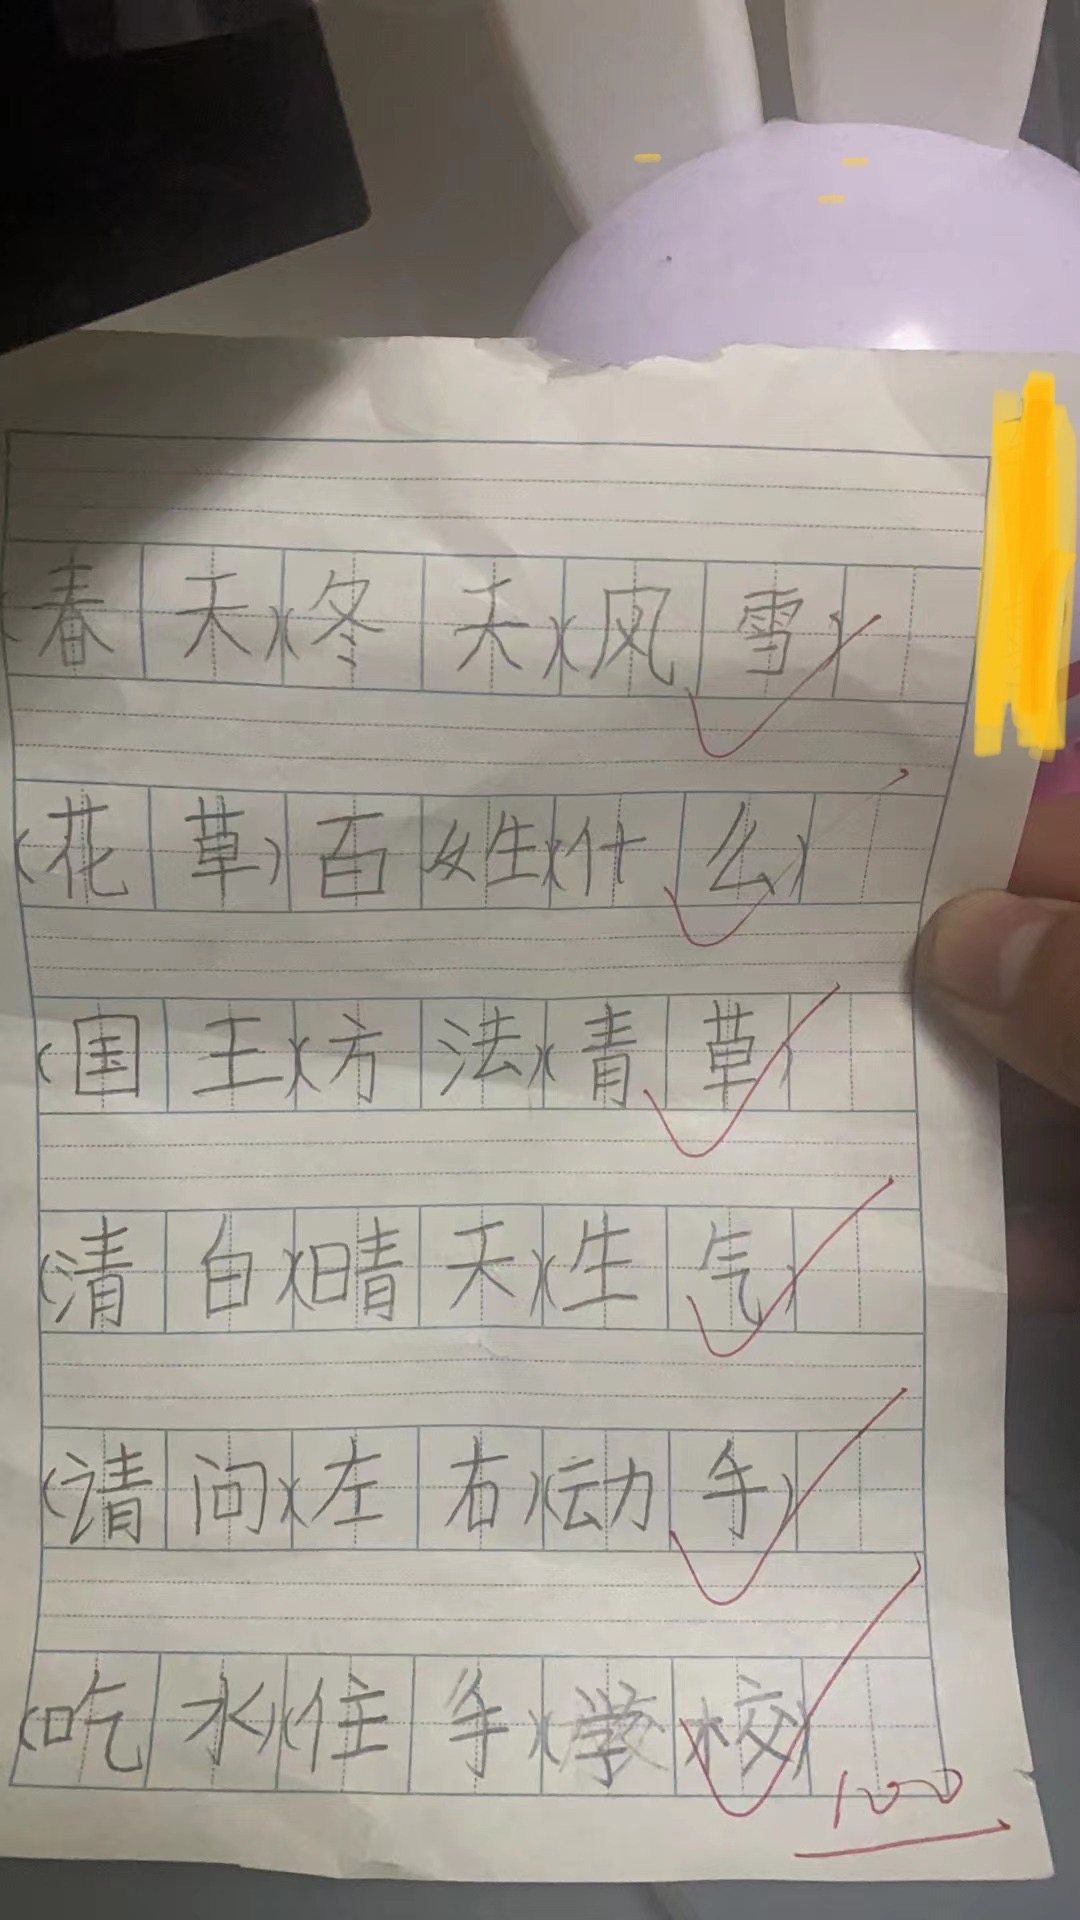 (春天)(冬天)(风雪)
(花草)百姓(什么)
(国王)(方法)(青草)
(清白)(晴天)(生气)
(请问)(左右)(动手)
(吃水)(住手)(学校)
100